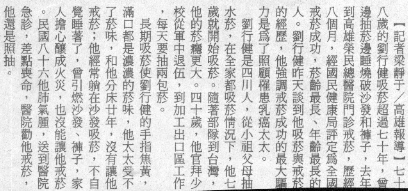 【記者梁靜于／高雄報導】七十
八歲的劉行健吸菸超過七十年，曾
邊抽菸邊睡燒破沙發和褲子，去年
到高雄榮民總醫院門診戒菸，歷經
八個月，經國民健康局評定為全國
戒菸成功，菸齡最長、年齡最長的
人。劉行健昨天談到他吸菸與戒菸
的經歷，他強調戒菸成功的最大驅
力是為了照顧罹患乳癌太太。
劉行健是四川人，從小祖父母抽
水菸，在全家都吸菸情況下，他七
歲就開始吸菸。隨著部隊到台灣，
他的菸癮更大。四十歲，他官拜少
校從軍中退伍，到加工出口區工作
，每天要抽兩包菸。
長期吸菸使劉行健的手指焦黃，
滿口都是濃濃的菸味，他太太受不
了菸味，和他分床十年，沒有讓他
戒菸；他經常躺在沙發吸菸，不自
覺睡著了，曾引燃沙發、褲子，家
人擔心釀成火災，也沒能讓他戒菸
。民國八十六他肺氣腫，送到醫院
急診，差點喪命，醫院勸他戒菸，
他還是照抽。